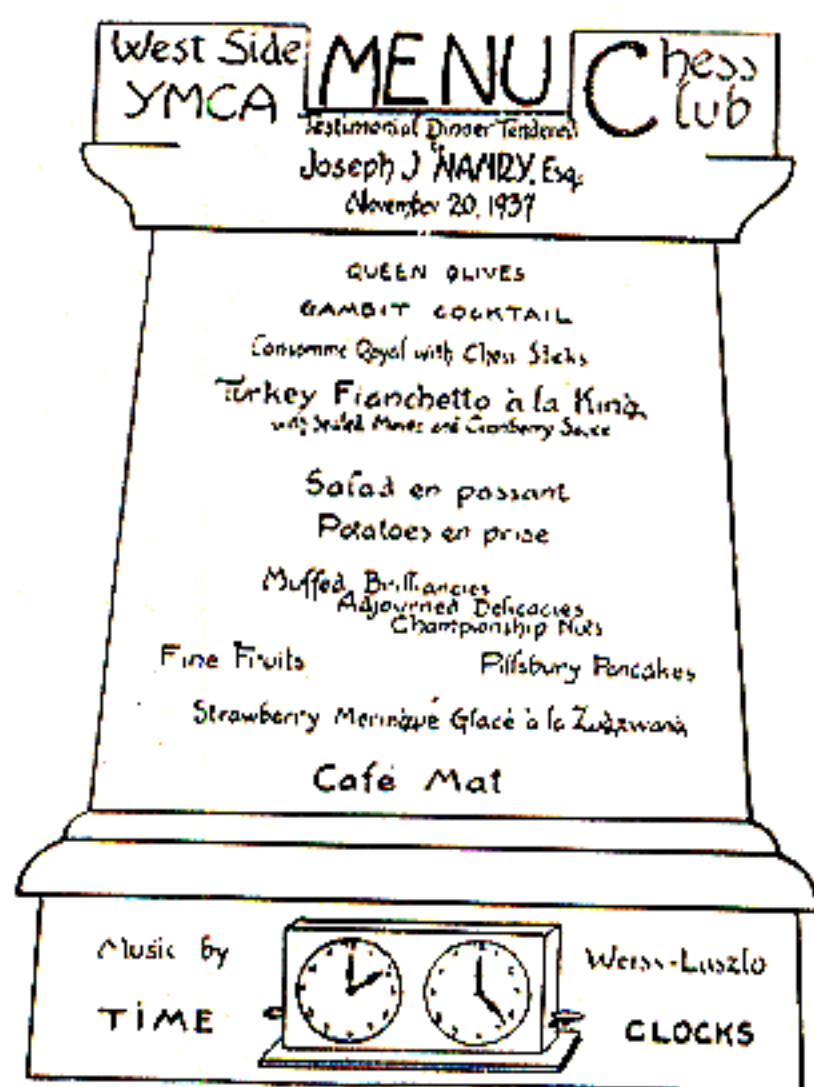 West Side
YMCA
MENU
Chess
Club
Testimonial Dinner Tendered
to
Joseph J. NAMRY, Esq.
November 20, 1937
QUEEN OLIVES
GAMBIT COCKTAIL
Consommé Royal with Chess Sticks
Turkey Fianchetto à la King
with Sealed Moves and Cranberry Sauce
Salad en passant
Potatoes en prise
Muffed Brilliancies
Adjourned Delicacies
Championship Nuts
Fine Fruits
Pillsbury Pancakes
Strawberry Meringué Glacé à la Zugzwang
Café Mat
Music by
Weiss-Laszlo
TIME
CLOCKS